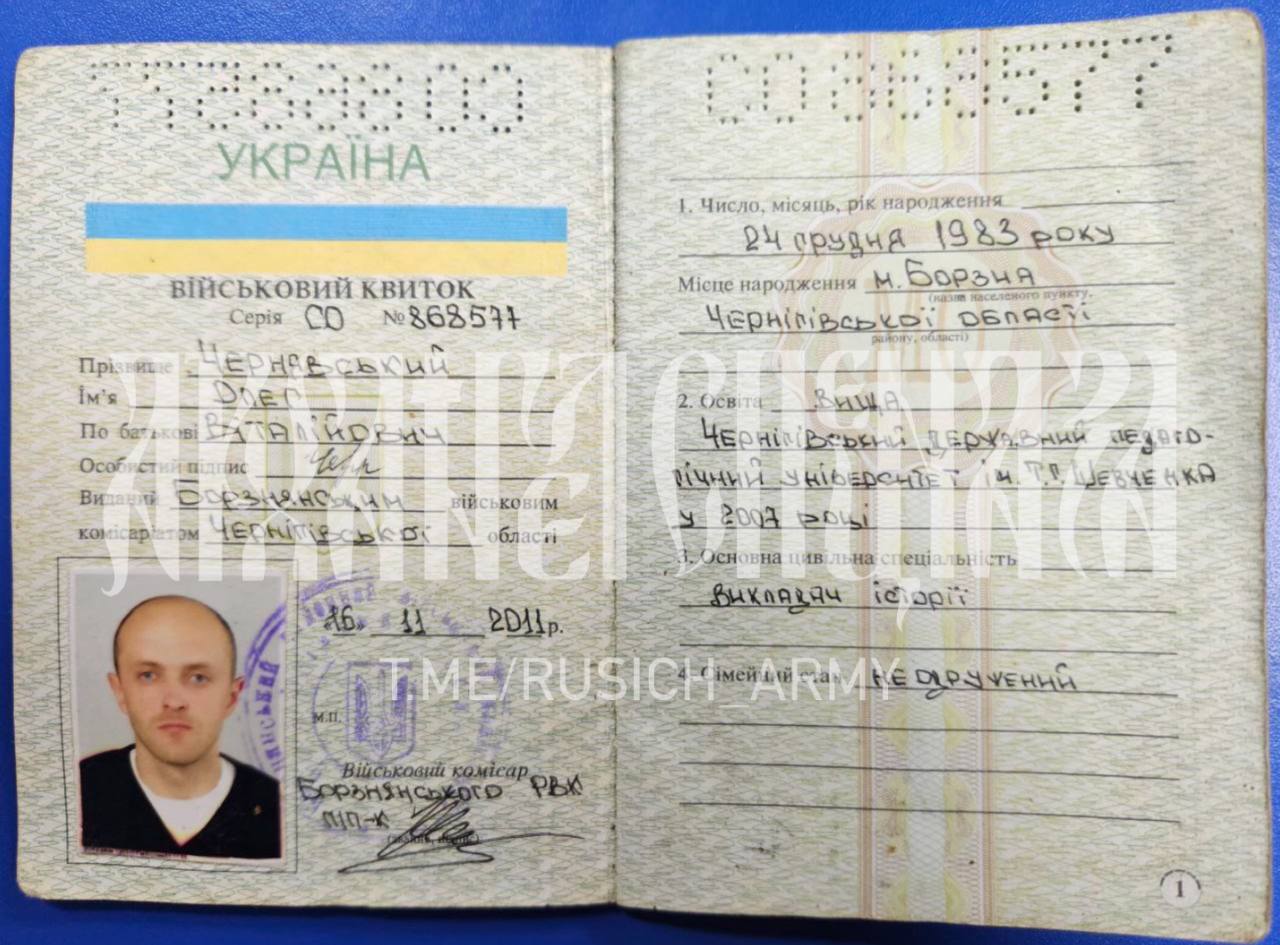 СО 868577
УКРАЇНА
ВІЙСЬКОВИЙ КВИТОК
Серія СО № 868577
Прізвище Чернявський
Ім'я Олег
По батькові Віталійович
Особистий підпис
Виданий Борзнянським військовим
комісаріатом Чернігівської області
«16» 11 2011 р.
М.П.
Військовий комісар
Борзнянського РВК
П/П-К
СО 868577
1. Число, місяць, рік народження
24 грудня 1983 року
Місце народження м. Борзна
(назва населеного пункту,
Чернігівської області
району, області)
2. Освіта вища
Чернігівський державний педаго-
гічний університет ім. Т.Г. Шевченка
у 2007 році
3. Основна цивільна спеціальність
викладач історії
4. Сімейний стан неодружений
1
T.ME/RUSICH_ARMY